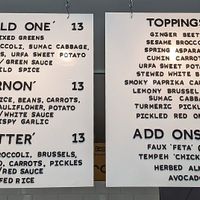 LD ONE' 13
IXED GREENS
OCCOLI, SUMAC CABBAGE,
S, URFA SWEET POTATO
/GREEN SAUCE
ILD SPICE
RNON' 13
RICE, BEANS, CARROTS,
CAULIFLOWER, POTATO
/WHITE SAUCE
ISPY GARLIC
TTER' 13
BROCCOLI, BRUSSELS,
D, CARROTS, PICKLES
/RED SAUCE
FED RICE
TOPPINGS
GINGER BEET
SESAME BROC
SPRING ASPARA
CUMIN CARROT
URFA SWEET POTATO
STEWED WHITE B
SMOKY PAPRIKA CA
LEMONY BRUSSEL
SUMAC CABBA
TURMERIC PICKL
PICKLED RED ON
ADD ONS
FAUX 'FETA' (
TEMPEH 'CHICK
HERBED ALM
AVOCAD